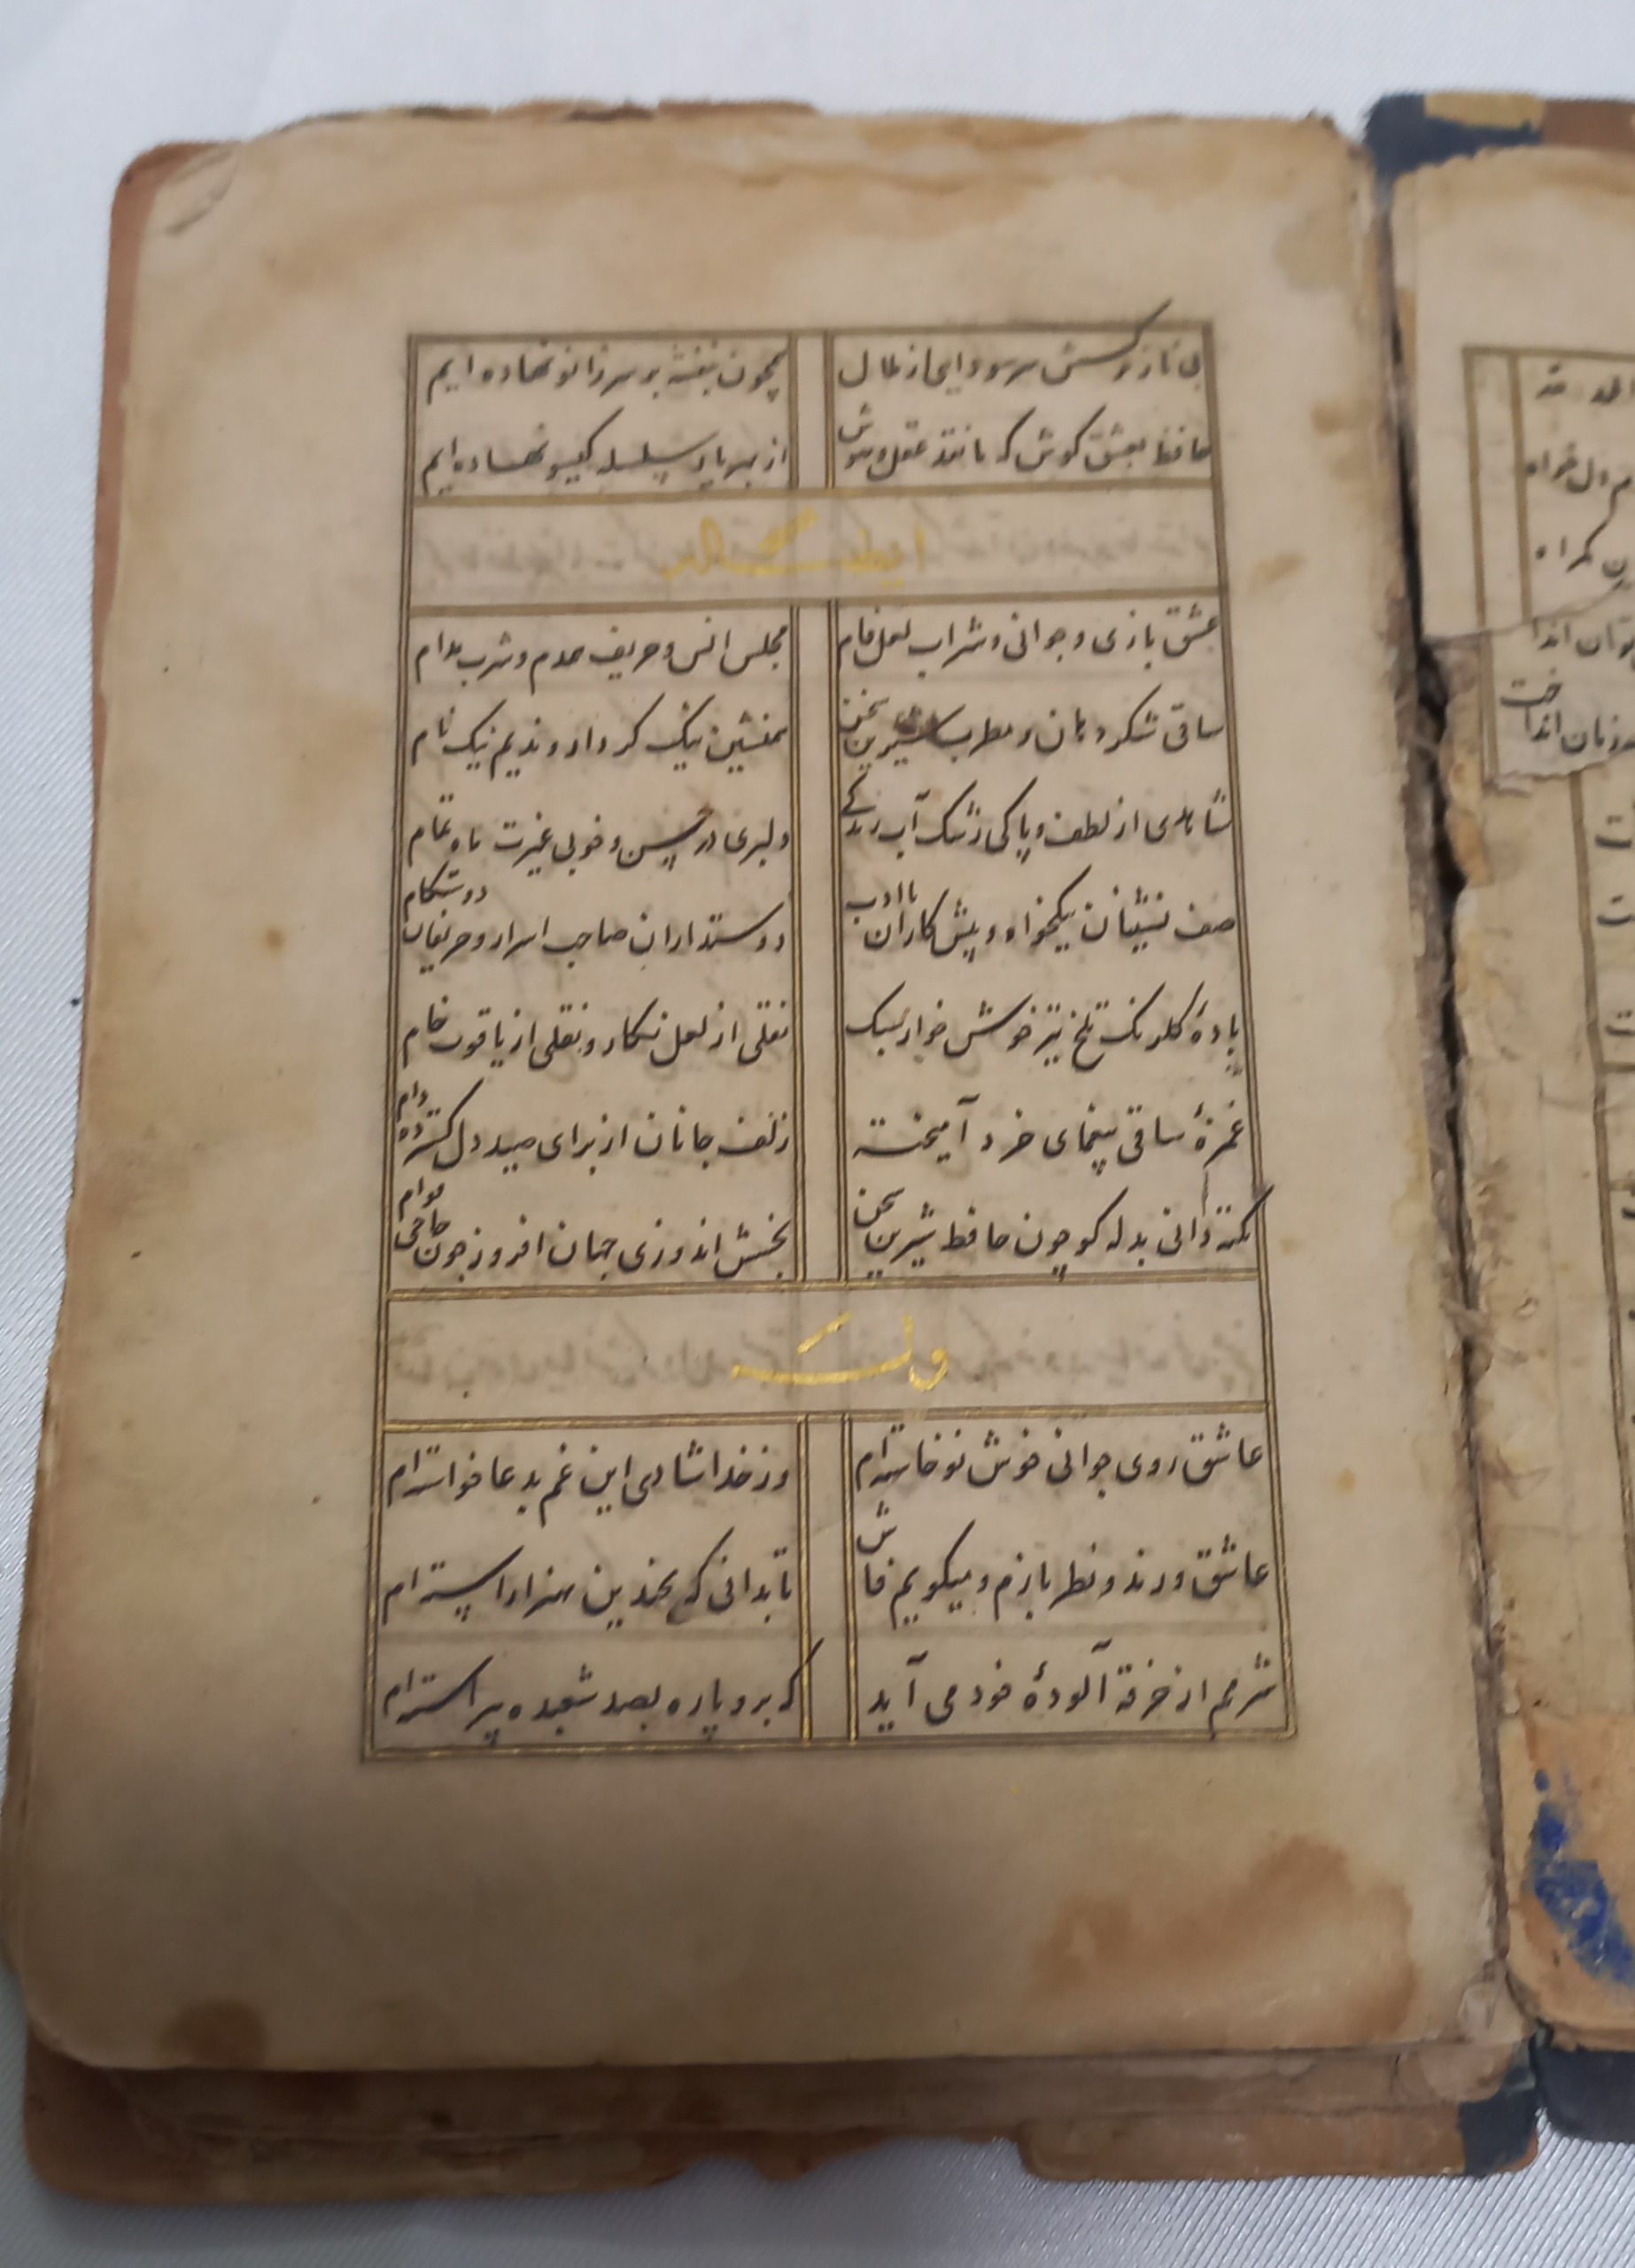 بی ناز نرگسش سر سودایی از ملال
همچون بنفشه بر سر زانو نهاده ایم
حافظ بعیش کوش که ما نقد عقل و هوش
از بهر یار سلسله گیسو نهاده ایم
ایضاً له
عشق بازی و جوانی و شراب لعل فام
مجلس انس و حریف همدم و شرب مدام
ساقی شکر دهان و مطرب شیرین سخن
همنشین نیک کردار و ندیم نیک نام
شاهدی از لطف و پاکی رشک آب زندگی
دلبری در حسن و خوبی غیرت ماه تمام
صف نشینان نیکخواه و پیش کاران با ادب
دوستداران صاحب اسرار و حریفان دوستکام
بادهٔ گلرنگ تلخ تیز خوش خوار سبک
نقلی از لعل نگار و نقلی از یاقوت خام
غمزهٔ ساقی بیغمای خرد آمیخته
زلف جانان از برای صید دل گسترده دام
نکته دانی بذله گو چون حافظ شیرین سخن
بخشش اندوزی جهان افروز چون حاجی قوام
وله
عاشق روی جوانی خوش نوخاسته‌ام
وز خدا شادی این غم بدعا خواسته‌ام
عاشق و رند و نظر بازم و میگویم فاش
تا بدانی که بچندین هنر آراسته‌ام
شرمم از خرقهٔ آلودهٔ خود می آید
که برو پاره بصد شعبده پیراسته‌ام